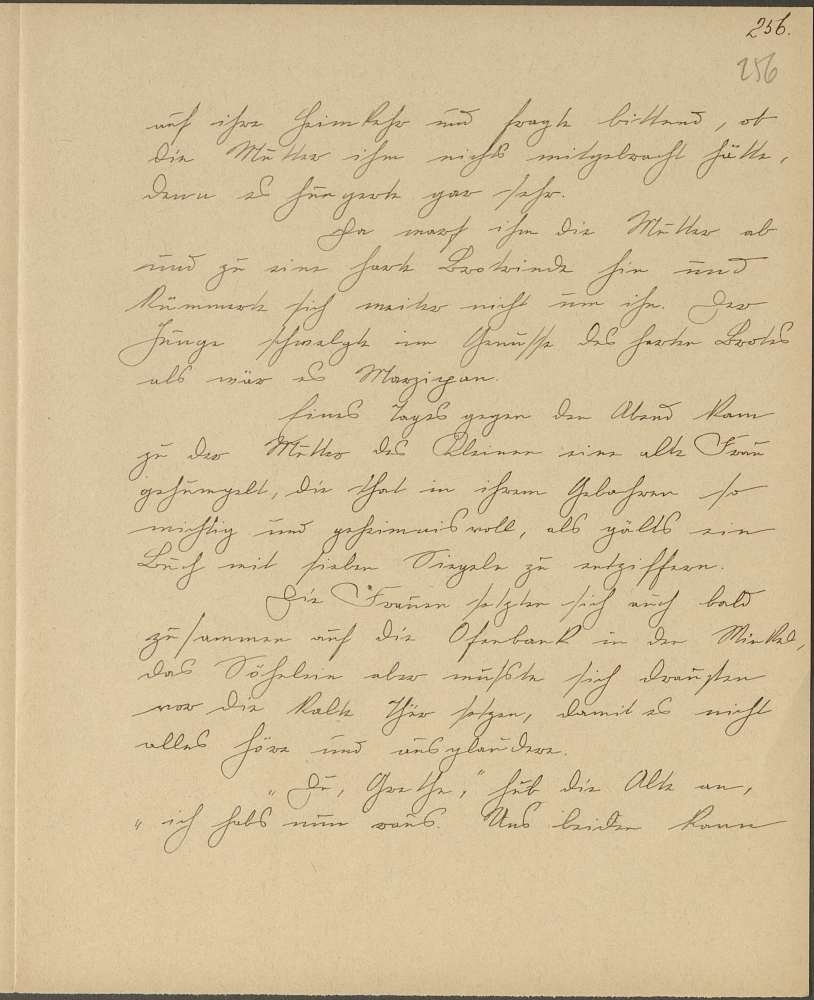 256.
256
auf ihre Heimkehr und fragte bittend, ob
die Mutter ihm nichts mitgebracht hätte,
denn es hungerte gar sehr.
Da warf ihm die Mutter ab
und zu eine harte Brotrinde hin und
kümmerte sich weiter nicht um ihn. Der
Junge schwelgte im Genusse des harten Brotes
als wär es Marzipan.
Eines Tages gegen den Abend kam
zu der Mutter des Kleinen eine alte Frau
gehumpelt, die that in ihrem Gebahren so
wichtig und geheimnisvoll, als gälts ein
Buch mit sieben Siegeln zu entziffern.
Die Frauen setzten sich auch bald
zusammen auf die Ofenbank in den Winkel,
das Söhnlein aber mußste sich draußen
vor die kalte Thür setzen, damit es nicht
alles höre und ausplaudere.
"Du, Grethe," hub die Alte an,
"ich habs nun raus. Uns beiden kann